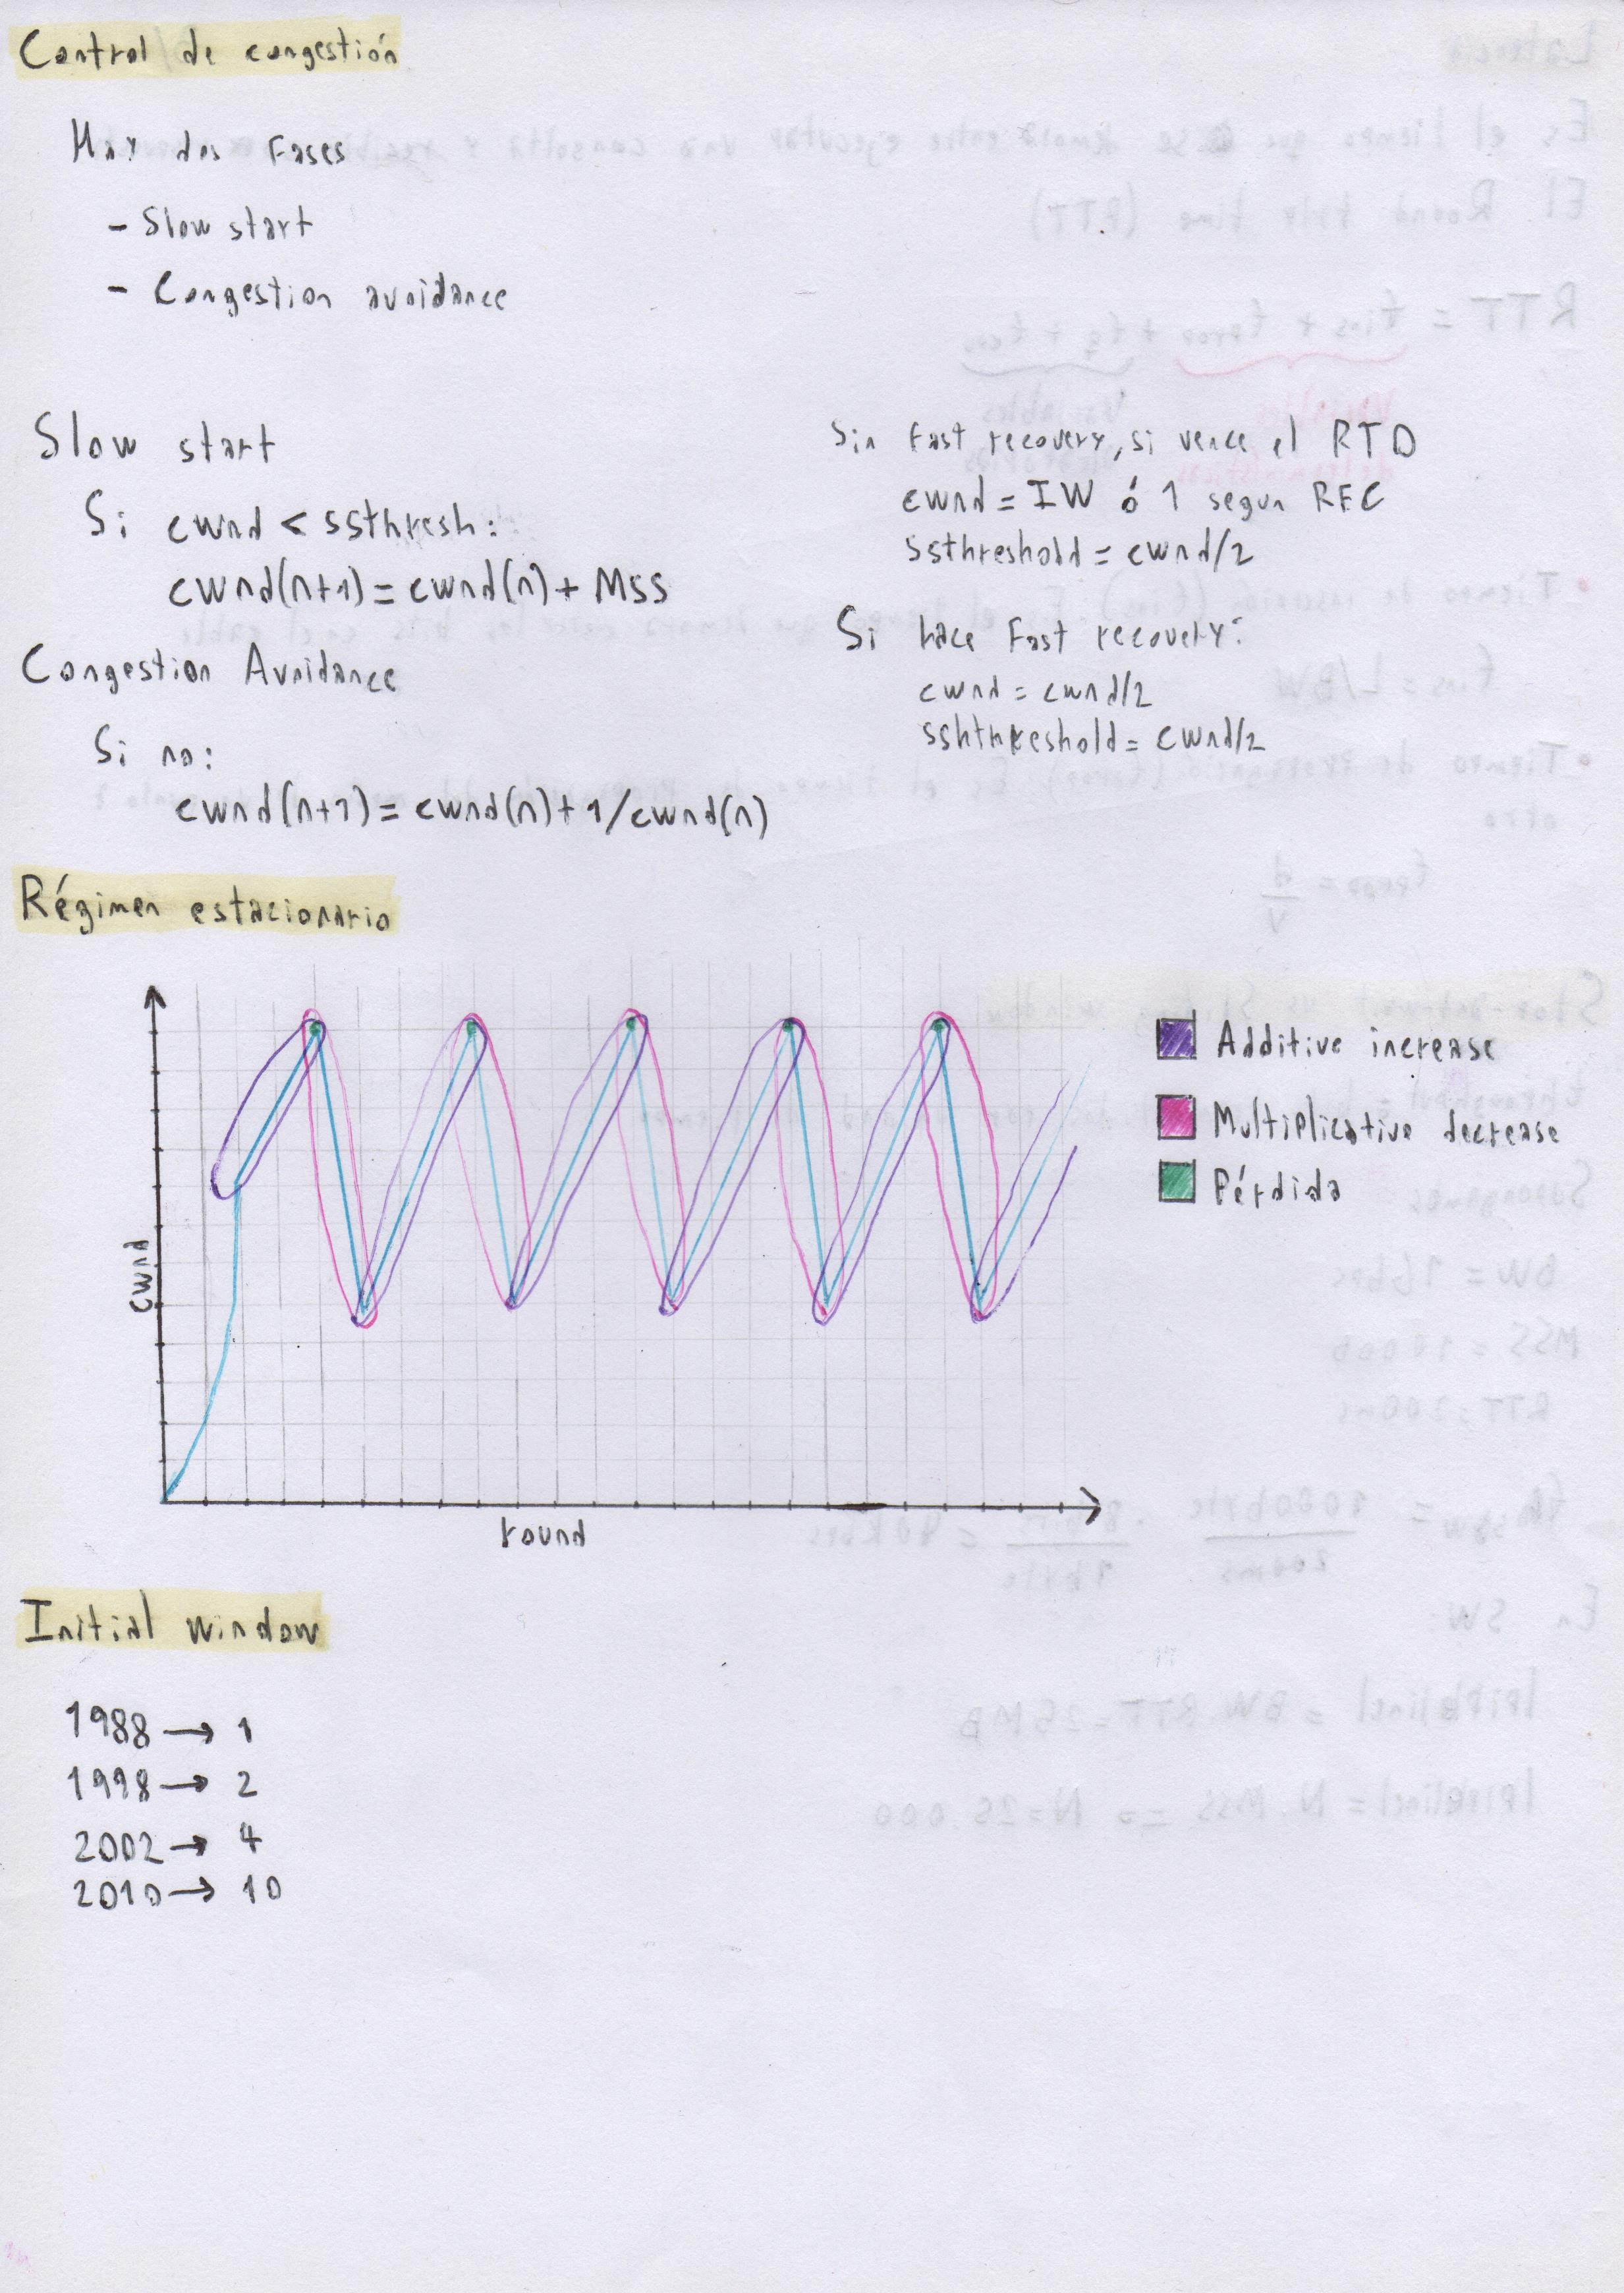 Control de congestión
Hay dos fases
- Slow start
- Congestion avoidance
Slow start
Si cwnd < ssthresh:
cwnd(n+1) = cwnd(n) + MSS
Congestion Avoidance
Si no:
cwnd(n+1) = cwnd(n) + 1/cwnd(n)
Sin fast recovery, si vence el RTO
cwnd = IW ó 1 segun RFC
ssthreshold = cwnd/2
Si hace Fast recovery:
cwnd = cwnd/2
sshthreshold = cwnd/2
Régimen estacionario
cwnd
round
Additive increase
Multiplicative decrease
Pérdida
Initial window
1988 → 1
1998 → 2
2002 → 4
2010 → 10